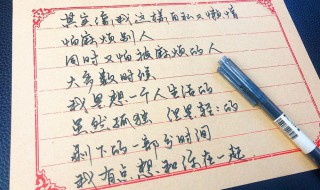 其实像我这样自私又懒惰
怕麻烦别人
同时又怕被麻烦的人
大多数时候
我是想一个人生活的
虽然孤独 但是轻
剩下的一部分时间
我有点想和你在一起